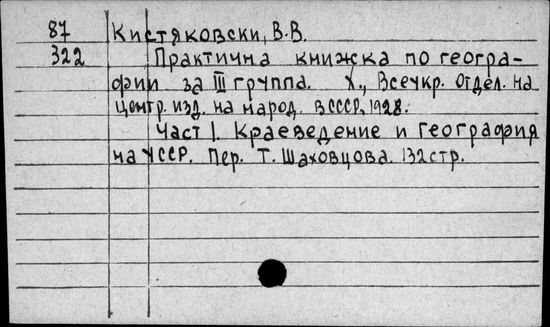 87 Кистяковски, В.В.
322 Практична книжка по геогра-
фии за III группа. Х., Всеукр. отдел. на
центр. изд. на народ. в СССР, 1928.
Част I. Краеведение и география
на УССР. Пер. Т. Шаховцова. 132стр.